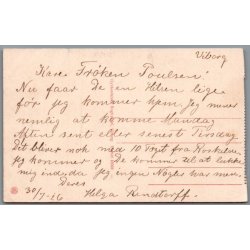 Viborg
Kære Frøken Poulsen!
Nu faar De en Hilsen lige
før jeg kommer hjem, jeg mener
nemlig at komme Mandag
Aften sent eller senest Tirsdag
Det bliver nok med 10 Toget fra
jeg kommer og De kommer til at lukke
mig ind, da jeg ingen Nøgler har med
Deres
30/7-16 Helga